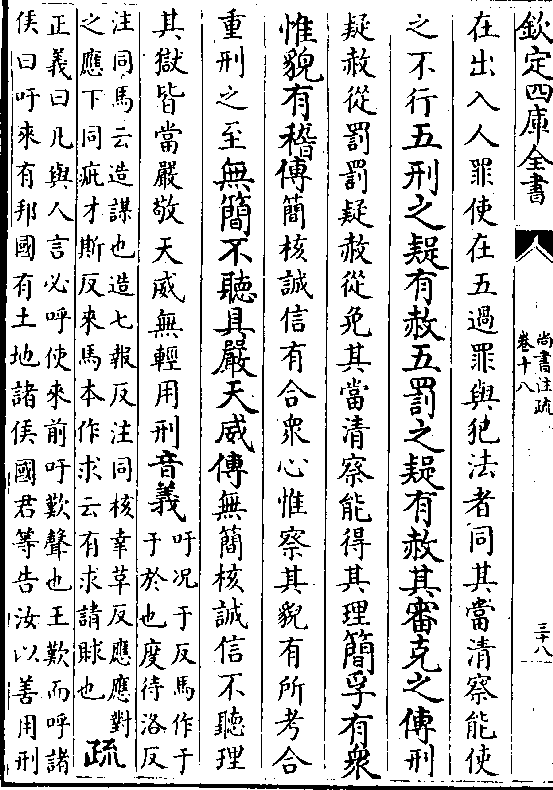 欽定四庫全書
尚書注疏
卷十八
三十八
在出入人罪使在五過罪與犯法者同其當清察能使
之不行五刑之疑有赦五罰之疑有赦其審克之傳刑
疑赦從罰罰疑赦從免其當清察能得其理簡孚有衆
惟貌有稽傳簡核誠信有合衆心惟察其貌有所考合
重刑之至無簡不聽具嚴天威傳無簡核誠信不聽理
其獄皆當嚴敬天威無輕用刑音義
吁况于反馬作于
于於也度待洛反
注同馬云造謀也造七報反注同核幸草反應應對
之應下同疵才斯反來馬本作求云有求請賕也
疏
正義曰凡與人言必呼使來前吁歎聲也王歎而呼諸
侯曰吁來有邦國有土地諸侯國君等告汝以善用刑